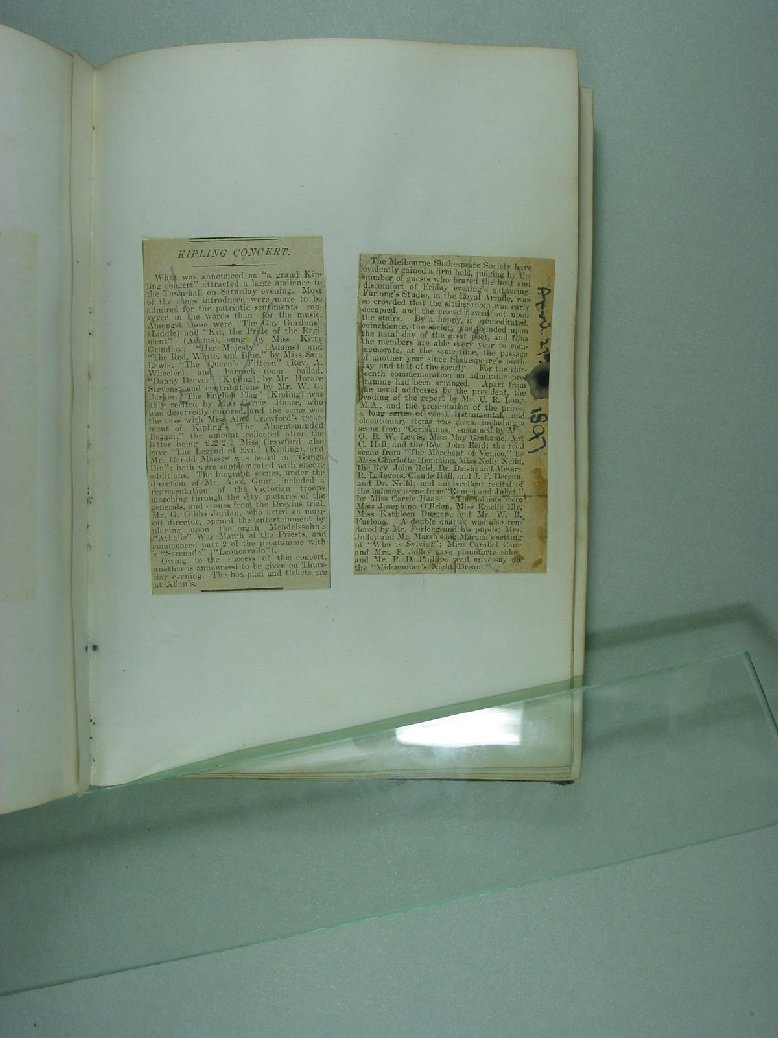 KIPLING CONCERT.
What was announced as "a grand Kip-
ling concert" attracted a large audience to
the Town-hall on Saturday evening. Most
of the songs introduced were more to be
admired for the patriotic sentiments con-
veyed in the words than for the music.
Amongst these were "The Gay Gordons"
(Liddle) and "Kit, the Pride of the Regi-
ment" (Adams), sung by Miss Kitty
"Her Majesty" (Adams) and
"The Red, White, and Blue," by Miss Sara
Lewis; "The Queen's (Rev. A.
Wheeler) and barrack-room ballad,
"Danny Deever" (Kipling), by Mr. Horace
Stevens; and contributions by Mr. W. G.
Barker. "The English Flag" (Kipling) was
ably recited by Miss Carrie Haase, who
was deservedly encored, and the same was
the case with Miss Crawford's treat-
ment of Kipling's "The Absent-minded
Beggar," the amount collected after the
latter being Miss Crawford also
gave "The Legend of Evil" (Kipling), and
Mr. Gerald Massey was heard in "Gunga
Din;" both were supplemented with encore
additions. The biograph scenes, under the
direction of Mr. Alex. Gunn, included a
representation of the Victorian troops
marching through the city, pictures of the
generals, and scenes from the Dreyfus trial.
Mr. G. Gibbs Jordan, who acted as musi-
cal director, opened the entertainment by
playing upon the organ Mendelssohn's
"Athalie" War March of the Priests, and
commenced part 2 of the programme with
a "Serenade" (Leoncavallo).
Owing to the success of this concert,
another is announced to be given on Thurs-
day evening. The box-plan and tickets are
at Allan's.
The Melbourne Shakespeare Society have
evidently gained a firm hold, judging by the
number of guests who braved the heat and
discomfort of Friday evening's gathering.
Furlong's Studio, in the Royal Arcade, was
so crowded that the sitting-room was
occupied, and the crowd flowed out upon
the stairs. By a happy, if premeditated,
coincidence, the society was founded upon
the natal day of the great poet, and thus
the members are able every year to com-
memorate, at the same time, the passage
of another year since Shakespeare's birth-
day and that of the society. For the thir-
teenth commemoration an admirable pro-
gramme had been arranged. Apart from
the usual addresses by the president, the
reading of the report by Mr. C. R. Long,
M.A., and the presentation of the prizes,
a long series of vocal, instrumental, and
elocutionary items was given, including a
scene from "Coriolanus," sustained by
G. B. W. Lewis, Miss May
C. Hall, and the Rev. John Reid; the trial
scene from "The Merchant of Venice," by
Miss Charlotte Hemming, Miss Nelly
the Rev. John Reid, Dr. and Messrs.
R. L. Jovers, Claude Hall, and J. F. Deegan,
and Dr. Neild; and an excellent recital of
the balcony scene from "Romeo and Juliet,"
by Miss Carrie Haase. The soloists were
Miss Josephine O'Brien, Miss Emilie
Miss Kathleen and Mr. W. R.
Furlong. A double quartet was also ren-
dered by Mr. Furlong and his pupils; Mrs.
Jolley and Mr. Marshall sang setting
of "Who is Sylvia?" Miss
and Mrs. F. Jolley gave pianoforte solos,
and Mr. F. D. read an essay on
the "Midsummer's Night Dream."
April
1897